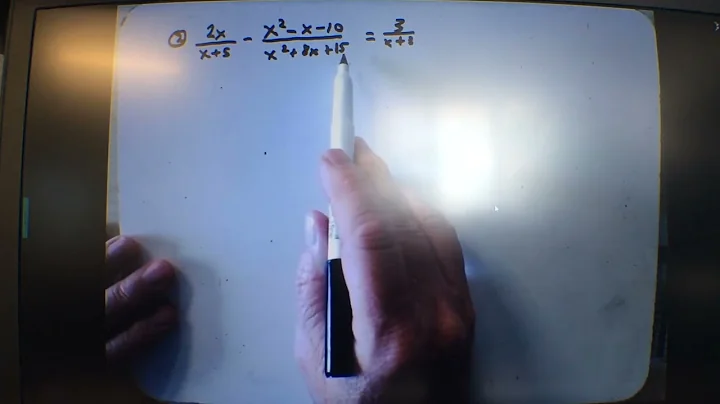 ② 2x/(x+5) - (x²-x-10)/(x²+8x+15) = 3/(x+3)